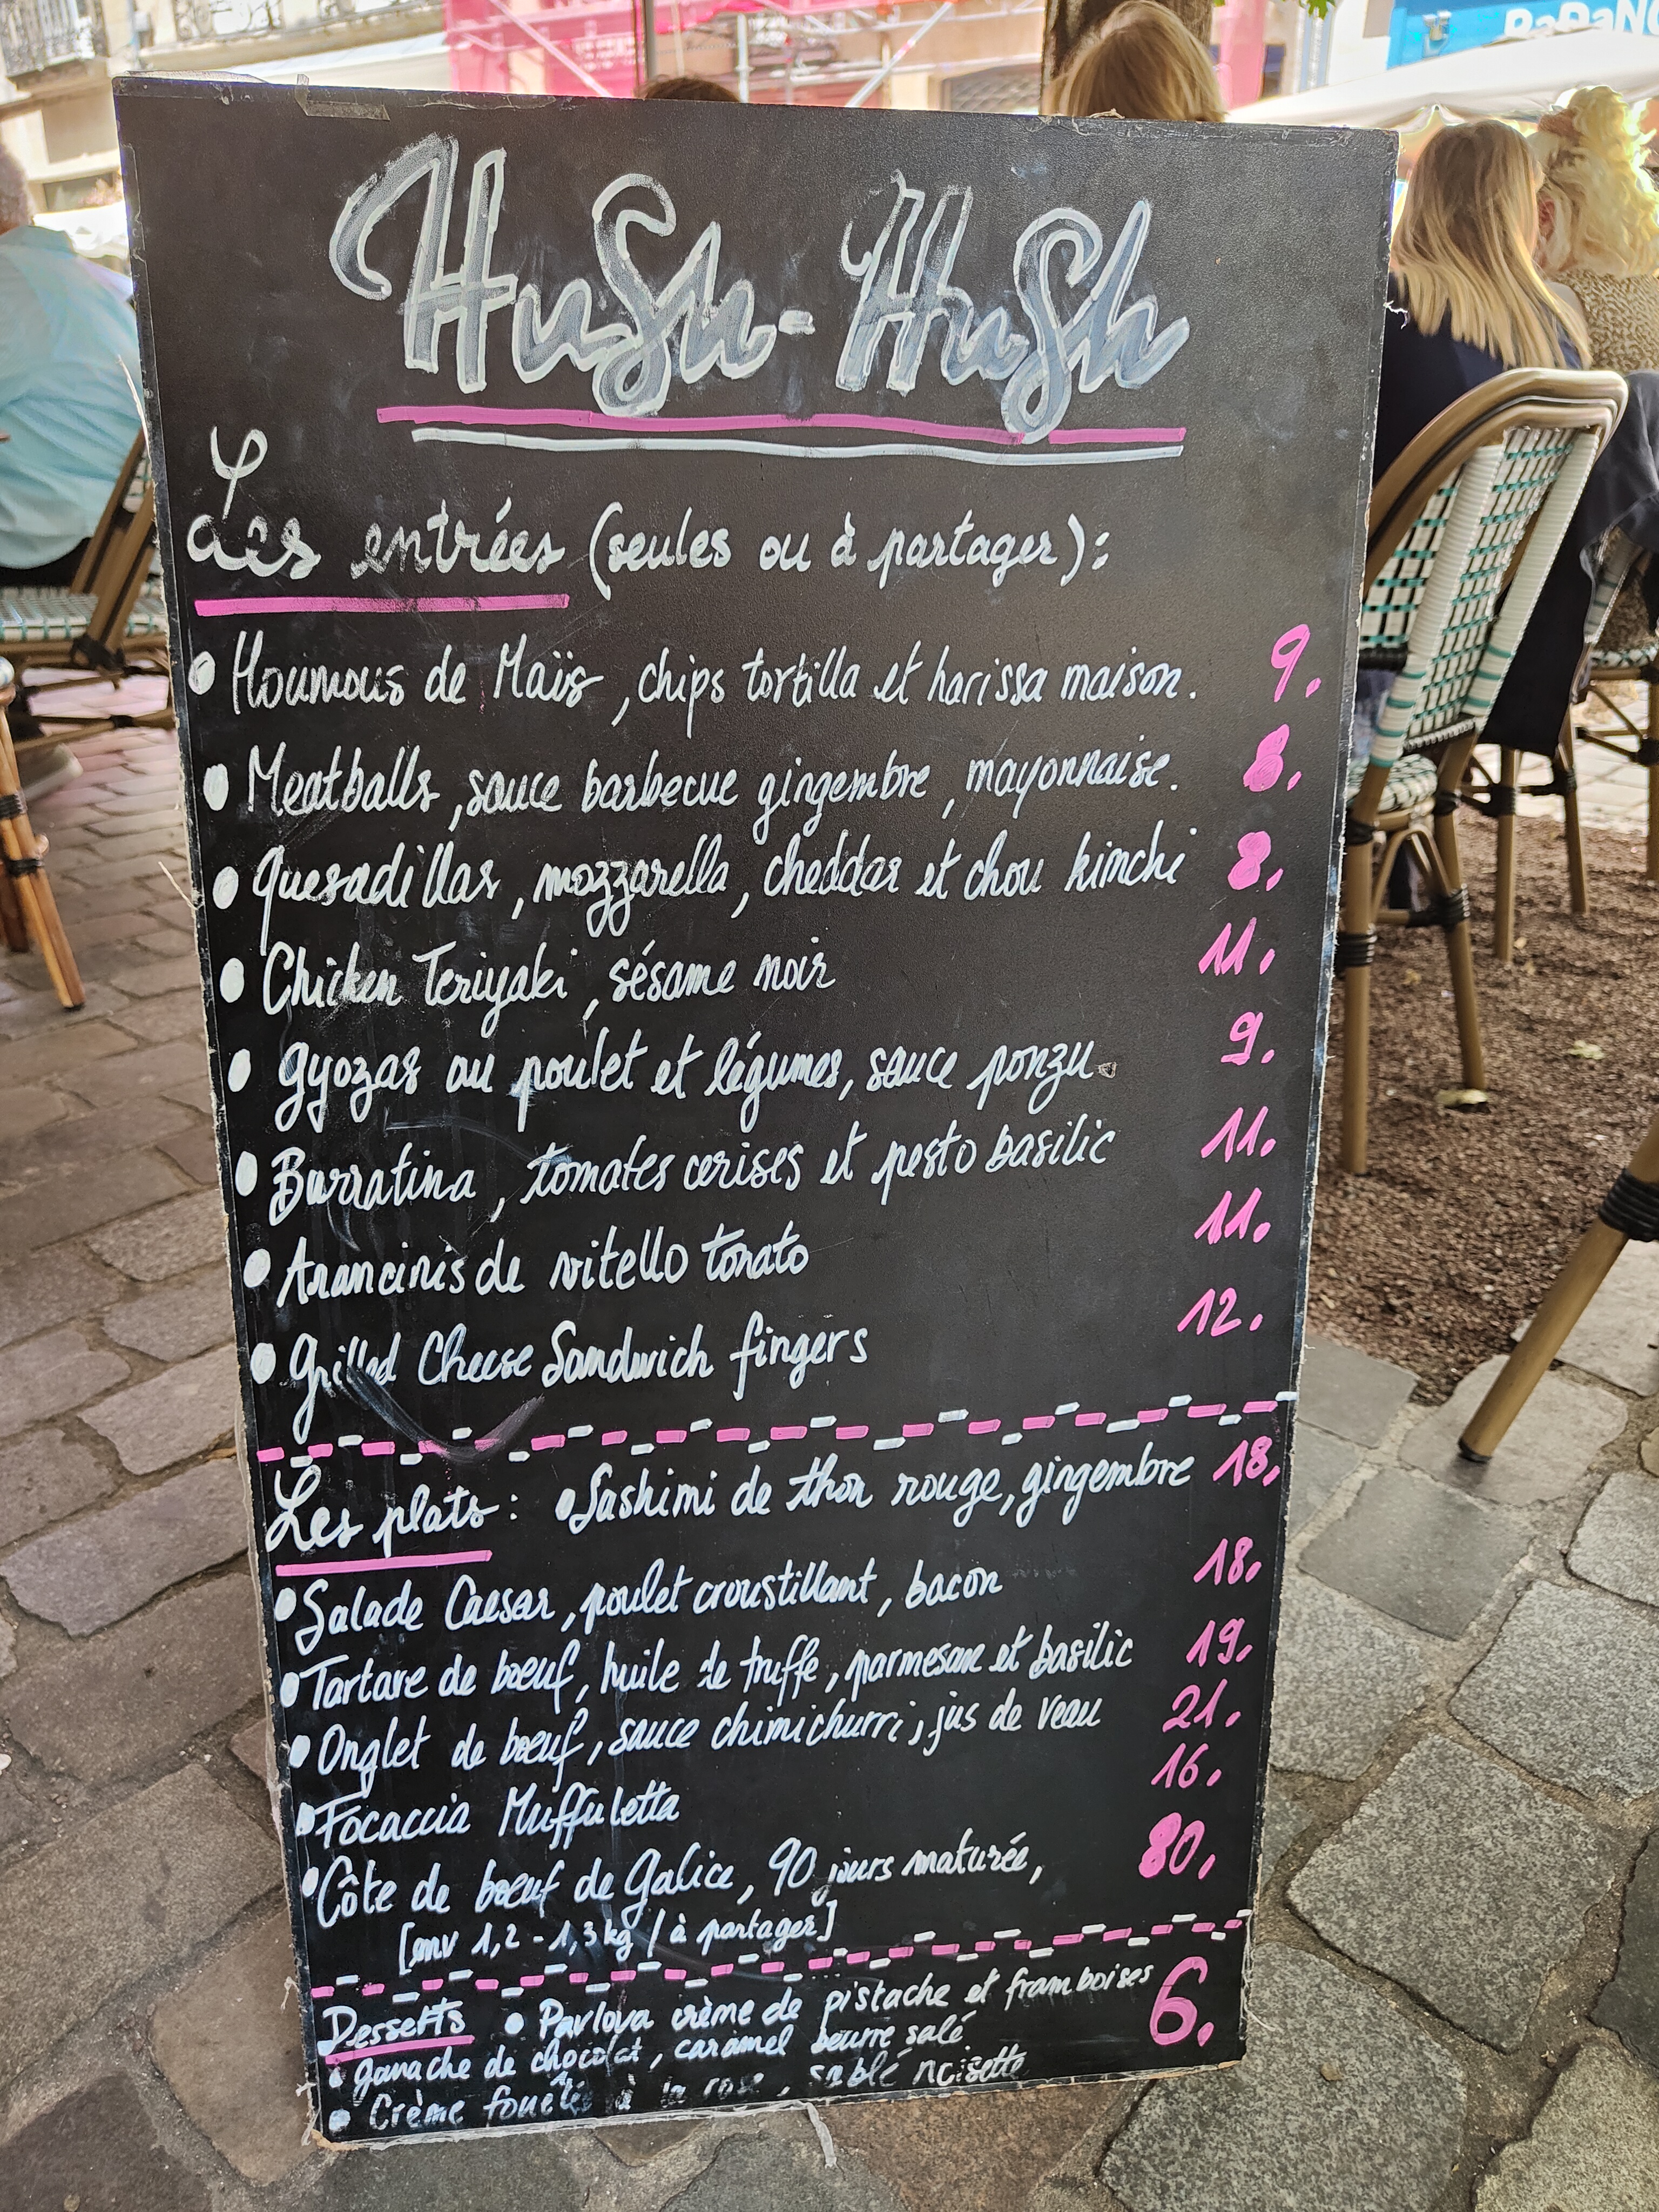 HuSh-HuSh
Les entrées (seules ou à partager):
• Houmous de Maïs, chips tortilla et harissa maison. 9.
• Meatballs, sauce barbecue gingembre, mayonnaise. 8.
• Quesadillas, mozzarella, cheddar et chou kimchi 8.
• Chicken Teriyaki, sésame noir 11.
• Gyozas au poulet et légumes, sauce ponzu. 9.
• Burratina, tomates cerises et pesto basilic 11.
• Arancinis de vitello tonato 11.
• Grilled Cheese Sandwich fingers 12.
Les plats: • Sashimi de thon rouge, gingembre 18.
• Salade Caesar, poulet croustillant, bacon 18.
• Tartare de bœuf, huile de truffe, parmesan et basilic 19.
• Onglet de bœuf, sauce chimichurri, jus de veau 21.
• Focaccia Muffuletta 16.
• Côte de bœuf de Galice, 90 jours maturée, 80.
[env 1,2 - 1,3 kg / à partager]
Desserts • Pavlova crème de pistache et framboises 6.
• ganache de chocolat, caramel beurre salé
• Crème à la rose, sablé noisette